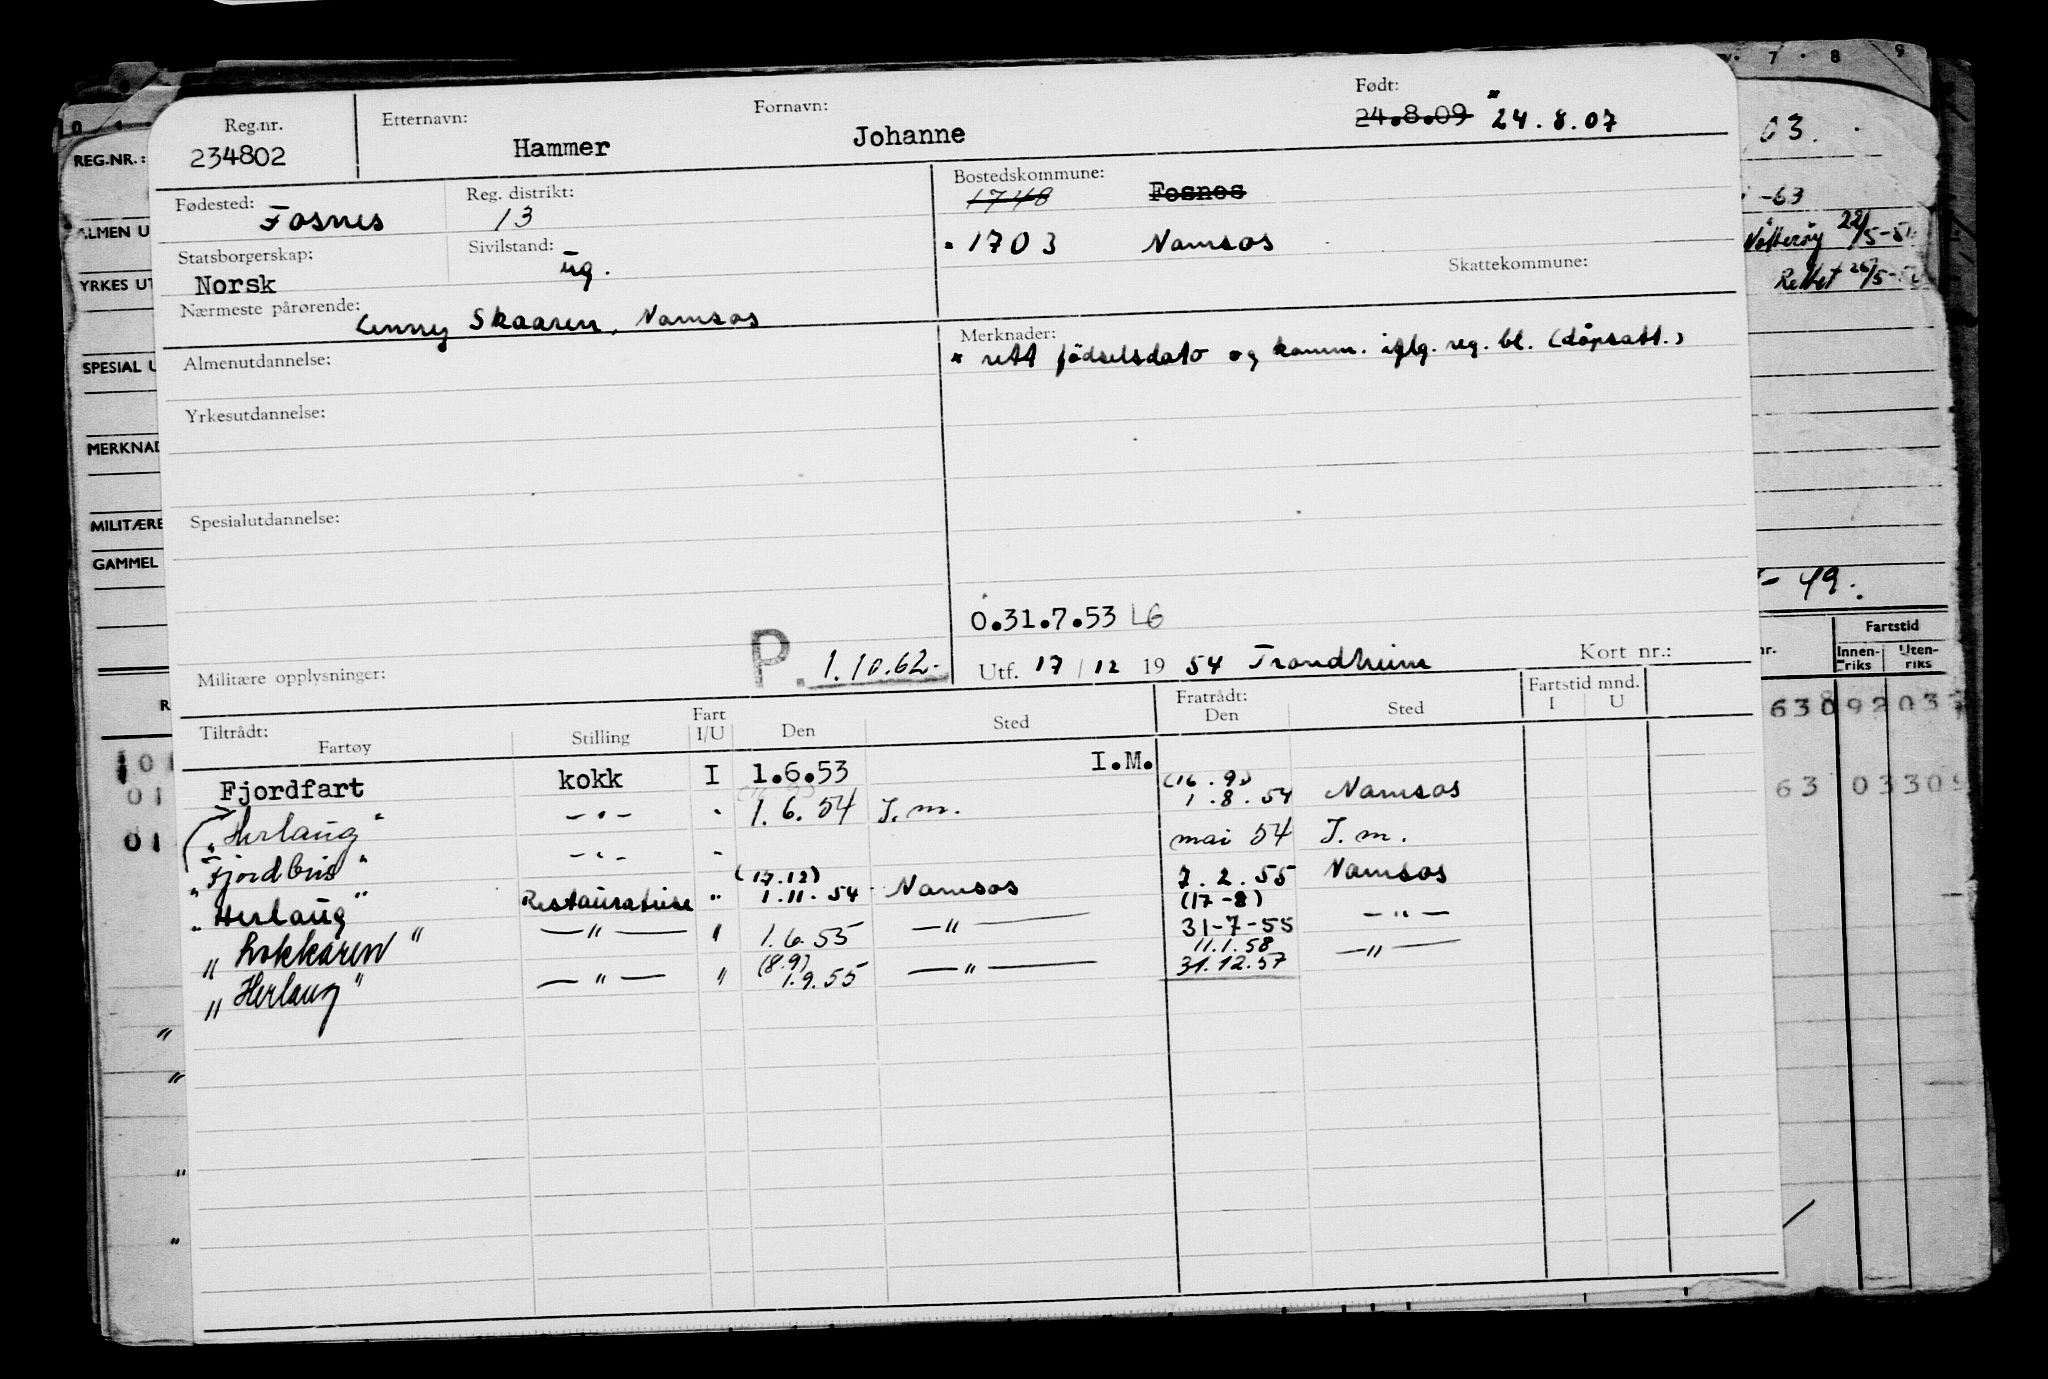 Reg.nr. Etternavn: Fornavn: Født:
234802 Hammer Johanne 24.8.09 * 24.8.07
Fødested: Fosnes Reg. distrikt: 13 Bostedskommune: 1748 Fosnes
Statsborgerskap: Norsk Sivilstand: ug. * 1703 Namsos
Skattekommune:
Nærmeste pårørende: Skaaren, Namsos
Merknader:
* rett fødselsdato og komm. iflg. reg. bl. (dåpsatt.)
Almenutdannelse:
Yrkesutdannelse:
Spesialutdannelse:
0.31.7.53 LG
Militære opplysninger: P. 1.10.62.- Utf. 17/12 19 54 Trondheim Kort nr.:
Tiltrådt: Fratrådt: Fartstid mnd.
Fartøy Stilling Fart I/U Den Sted Den Sted I U
Fjordfart kokk I 1.6.53 I.M. (16.9) 1.8.54 Namsos
"Herlaug" -"- " 1.6.54 I.m. mai 54 I.m.
" -"- " 7.2.55 Namsos
"Herlaug" " (17.12) 1.11.54 Namsos (17-8) 31-7-55 -"-
" " -"- " 1.6.55 -"- 11.1.58 -"-
"Herlaug" -"- " (8.9) 1.9.55 -"- 31.12.57
REG.NR.:
ALMEN U
YRKES UT
SPESIAL U
MERKNAD
MILITÆRE
GAMMEL
7 . 8 9
03.
-63
Nøtterøy 22/5-5
Rettet 26/5-5
- 49.
Fartstid
nr. Innen-riks Uten-riks
630 92 03
63 03 30
01
01
01